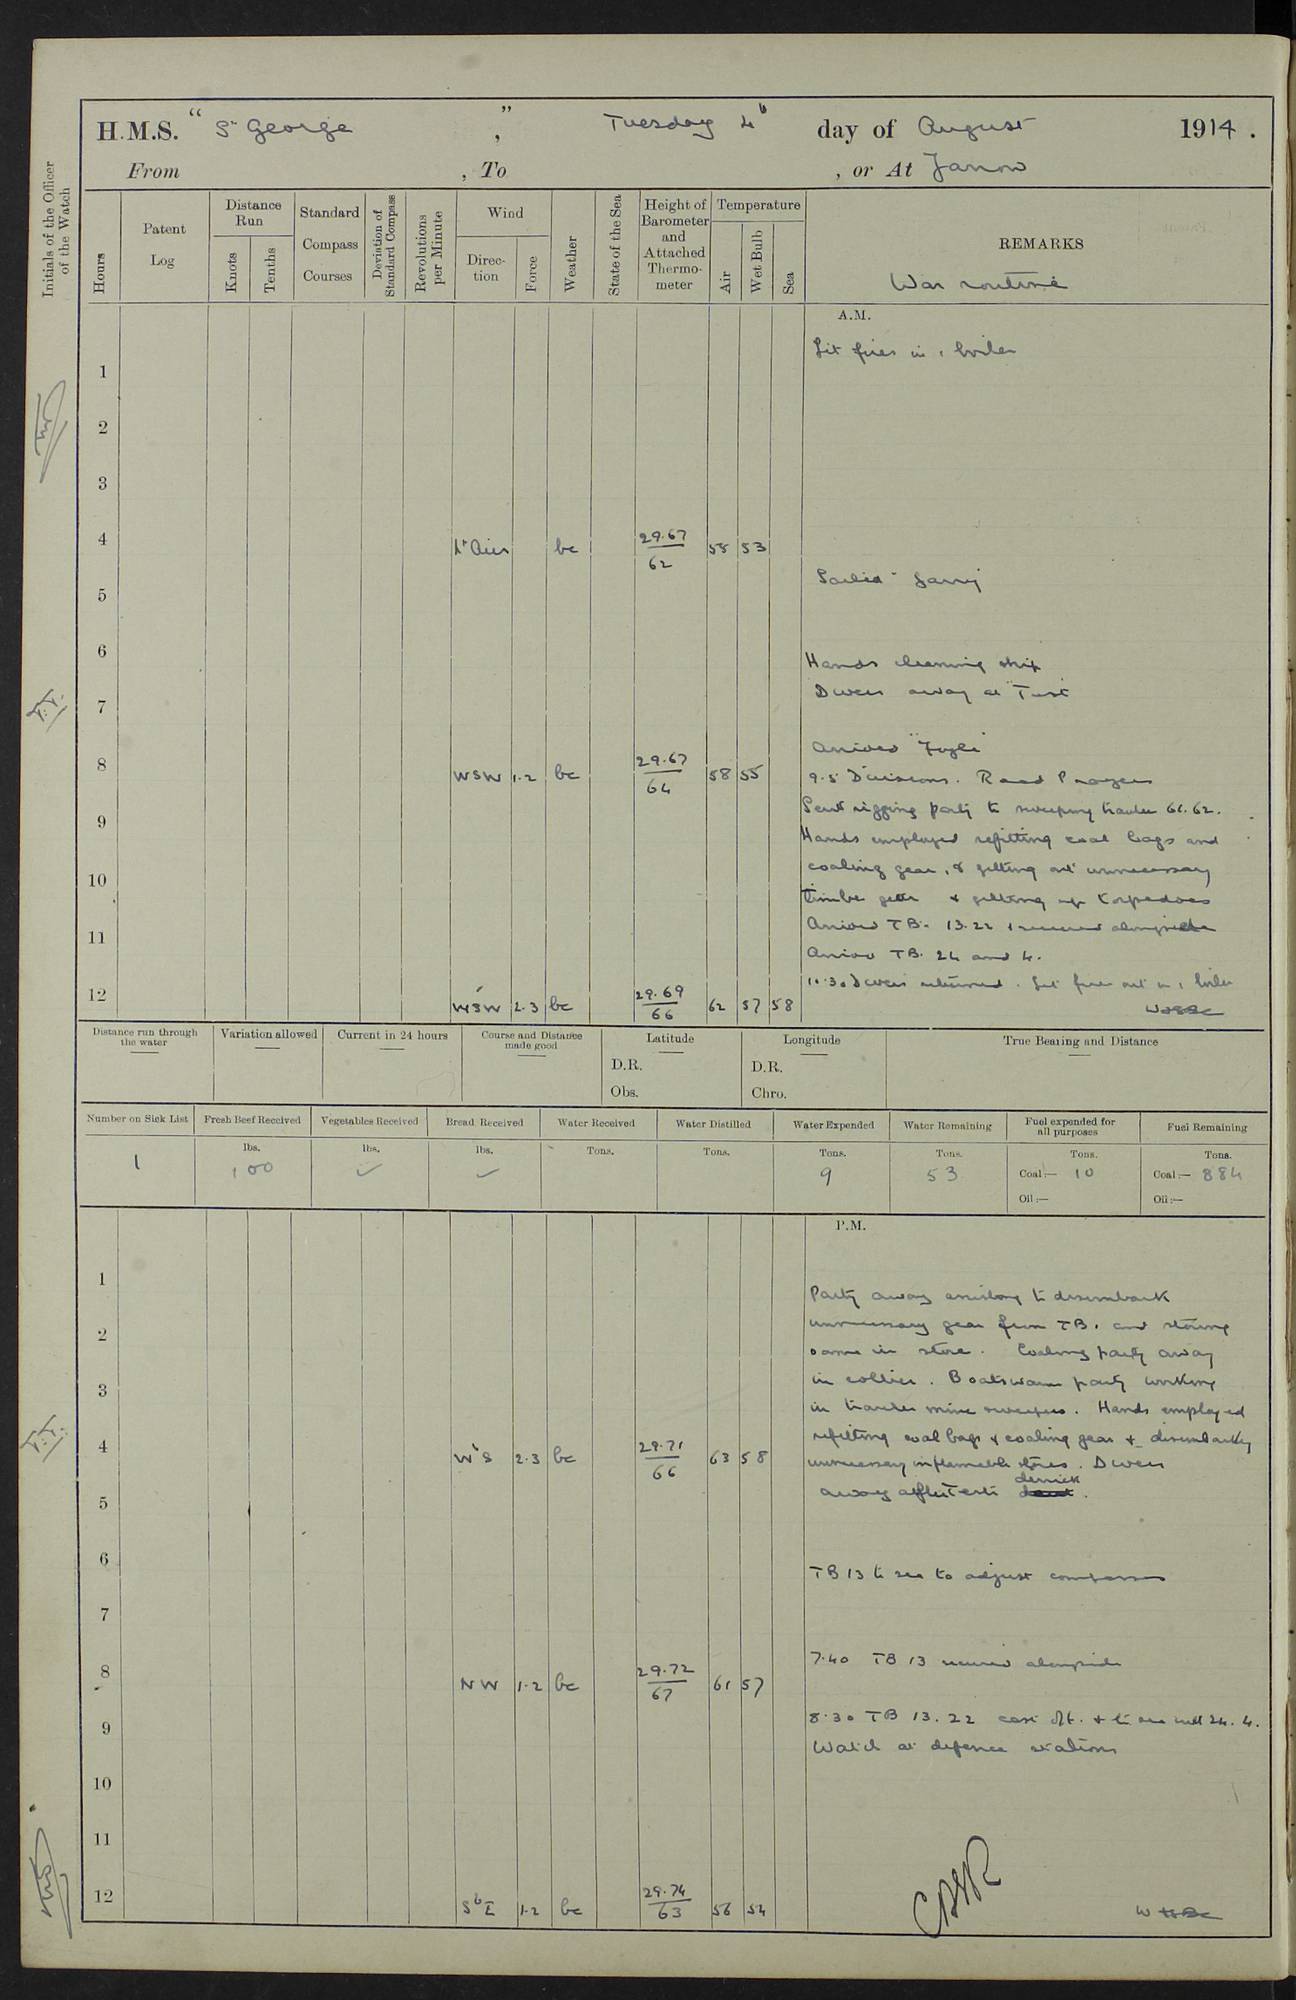 H.M.S. "St George", Tuesday 4th day of August 1914.
From , To , or At Jarrow
Initials of the Officer of the Watch
Hours
Patent Log
Distance Run
Knots
Tenths
Standard Compass Courses
Deviation of Standard Compass
Revolutions per Minute
Wind
Direction
Force
Weather
State of the Sea
Height of Barometer and Attached Thermometer
Temperature
Air
Wet Bulb
Sea
REMARKS
War routine
A.M.
Lit fires in 1 boiler
1
2
3
4 Lt Airs bc 29.67 62 55 53
Sailed
5
6
Hands cleaning ship
Divers away at
7
Arrived
8 WSW 1.2 bc 29.67 64 58 55
9.5 Divisions. Read Prayers
Sent rigging party to sweeping trawler 61. 62.
9
Hands employed refitting coal bags and
coaling gear, & getting out unnecessary
10
timber & getting up torpedoes
Arrived TB. 13. 22 & secured alongside
11
Arrived TB. 24 and 4.
10.30 Divers returned. Let fires out in 1 boiler
12 WSW 2.3 bc 29.69 66 62 57 58
Distance run through the water
Variation allowed
Current in 24 hours
Course and Distance made good
Latitude
D.R.
Obs.
Longitude
D.R.
Chro.
True Bearing and Distance
Number on Sick List
Fresh Beef Received
Vegetables Received
Bread Received
Water Received
Water Distilled
Water Expended
Water Remaining
Fuel expended for all purposes
Fuel Remaining
1
lbs. 100
lbs. ✓
lbs. ✓
Tons.
Tons.
Tons. 9
Tons. 53
Tons.
Coal:— 10
Oil:—
Tons.
Coal:— 884
Oil:—
P.M.
1
Party away assisting to disembark
2
unnecessary gear from TB. and storing
same in store. Coaling party away
3
in collier. Boatswain party working
in trawler mine sweepers. Hands employed
4 W'S 2.3 bc 29.71 66 63 58
refitting coal bags & coaling gear & disembarking
unnecessary inflammable stores. Divers
away derrick.
5
6
TB 13 to sea to adjust compasses
7
7.40 TB 13 secured alongside
8 NW 1.2 bc 29.72 67 61 57
8.30 TB 13. 22 cast off. & to sea with 24. 4.
9
Watch at defence stations
10
11
12 SbE 1.2 bc 29.74 63 56 54